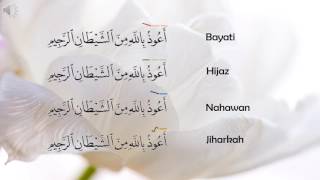 أَعُوذُ بِٱللَّهِ مِنَ ٱلشَّيْطَانِ ٱلرَّجِيمِ Bayati
أَعُوذُ بِٱللَّهِ مِنَ ٱلشَّيْطَانِ ٱلرَّجِيمِ Hijaz
أَعُوذُ بِٱللَّهِ مِنَ ٱلشَّيْطَانِ ٱلرَّجِيمِ Nahawan
أَعُوذُ بِٱللَّهِ مِنَ ٱلشَّيْطَانِ ٱلرَّجِيمِ Jiharkah